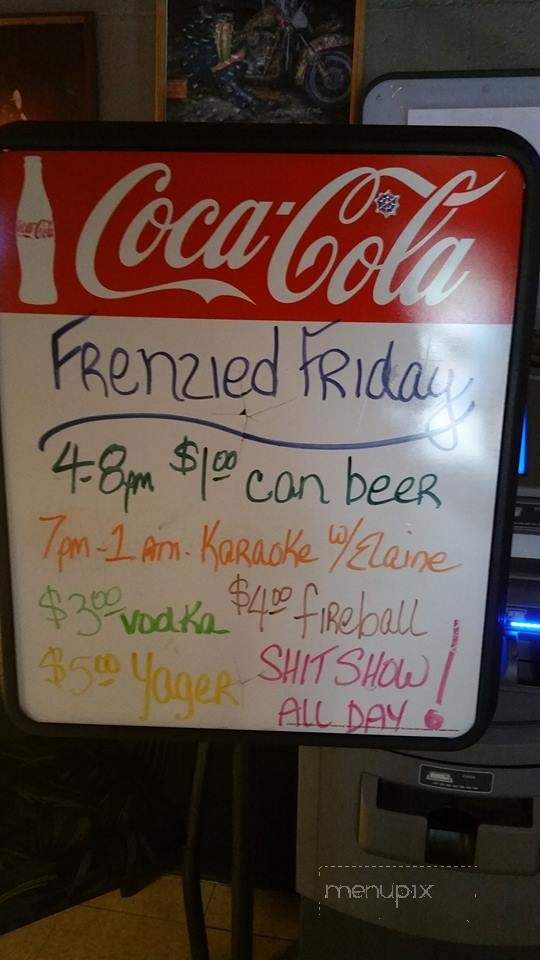 Coca-Cola
Coca-Cola
Frenzied Friday
4-8pm $1.00 can beer
7pm-1am. Karaoke w/Elaine
$3.00 vodka $4.00 fireball
$5.00 Yager SHIT SHOW!
ALL DAY
menupix